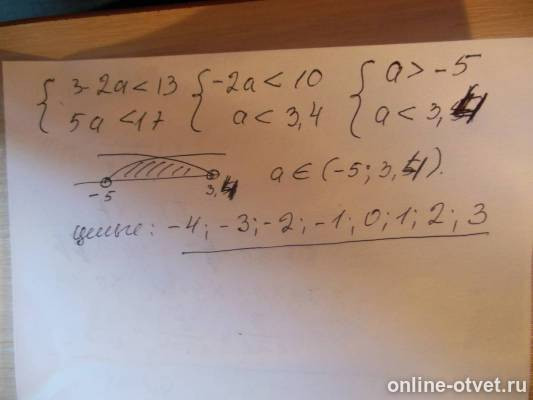 { 3-2a<13 { -2a<10 { a>-5
5a<17 a<3,4 a<3,4
-5 3,4 a∈(-5; 3,4).
целые: -4; -3; -2; -1; 0; 1; 2; 3
online-otvet.ru